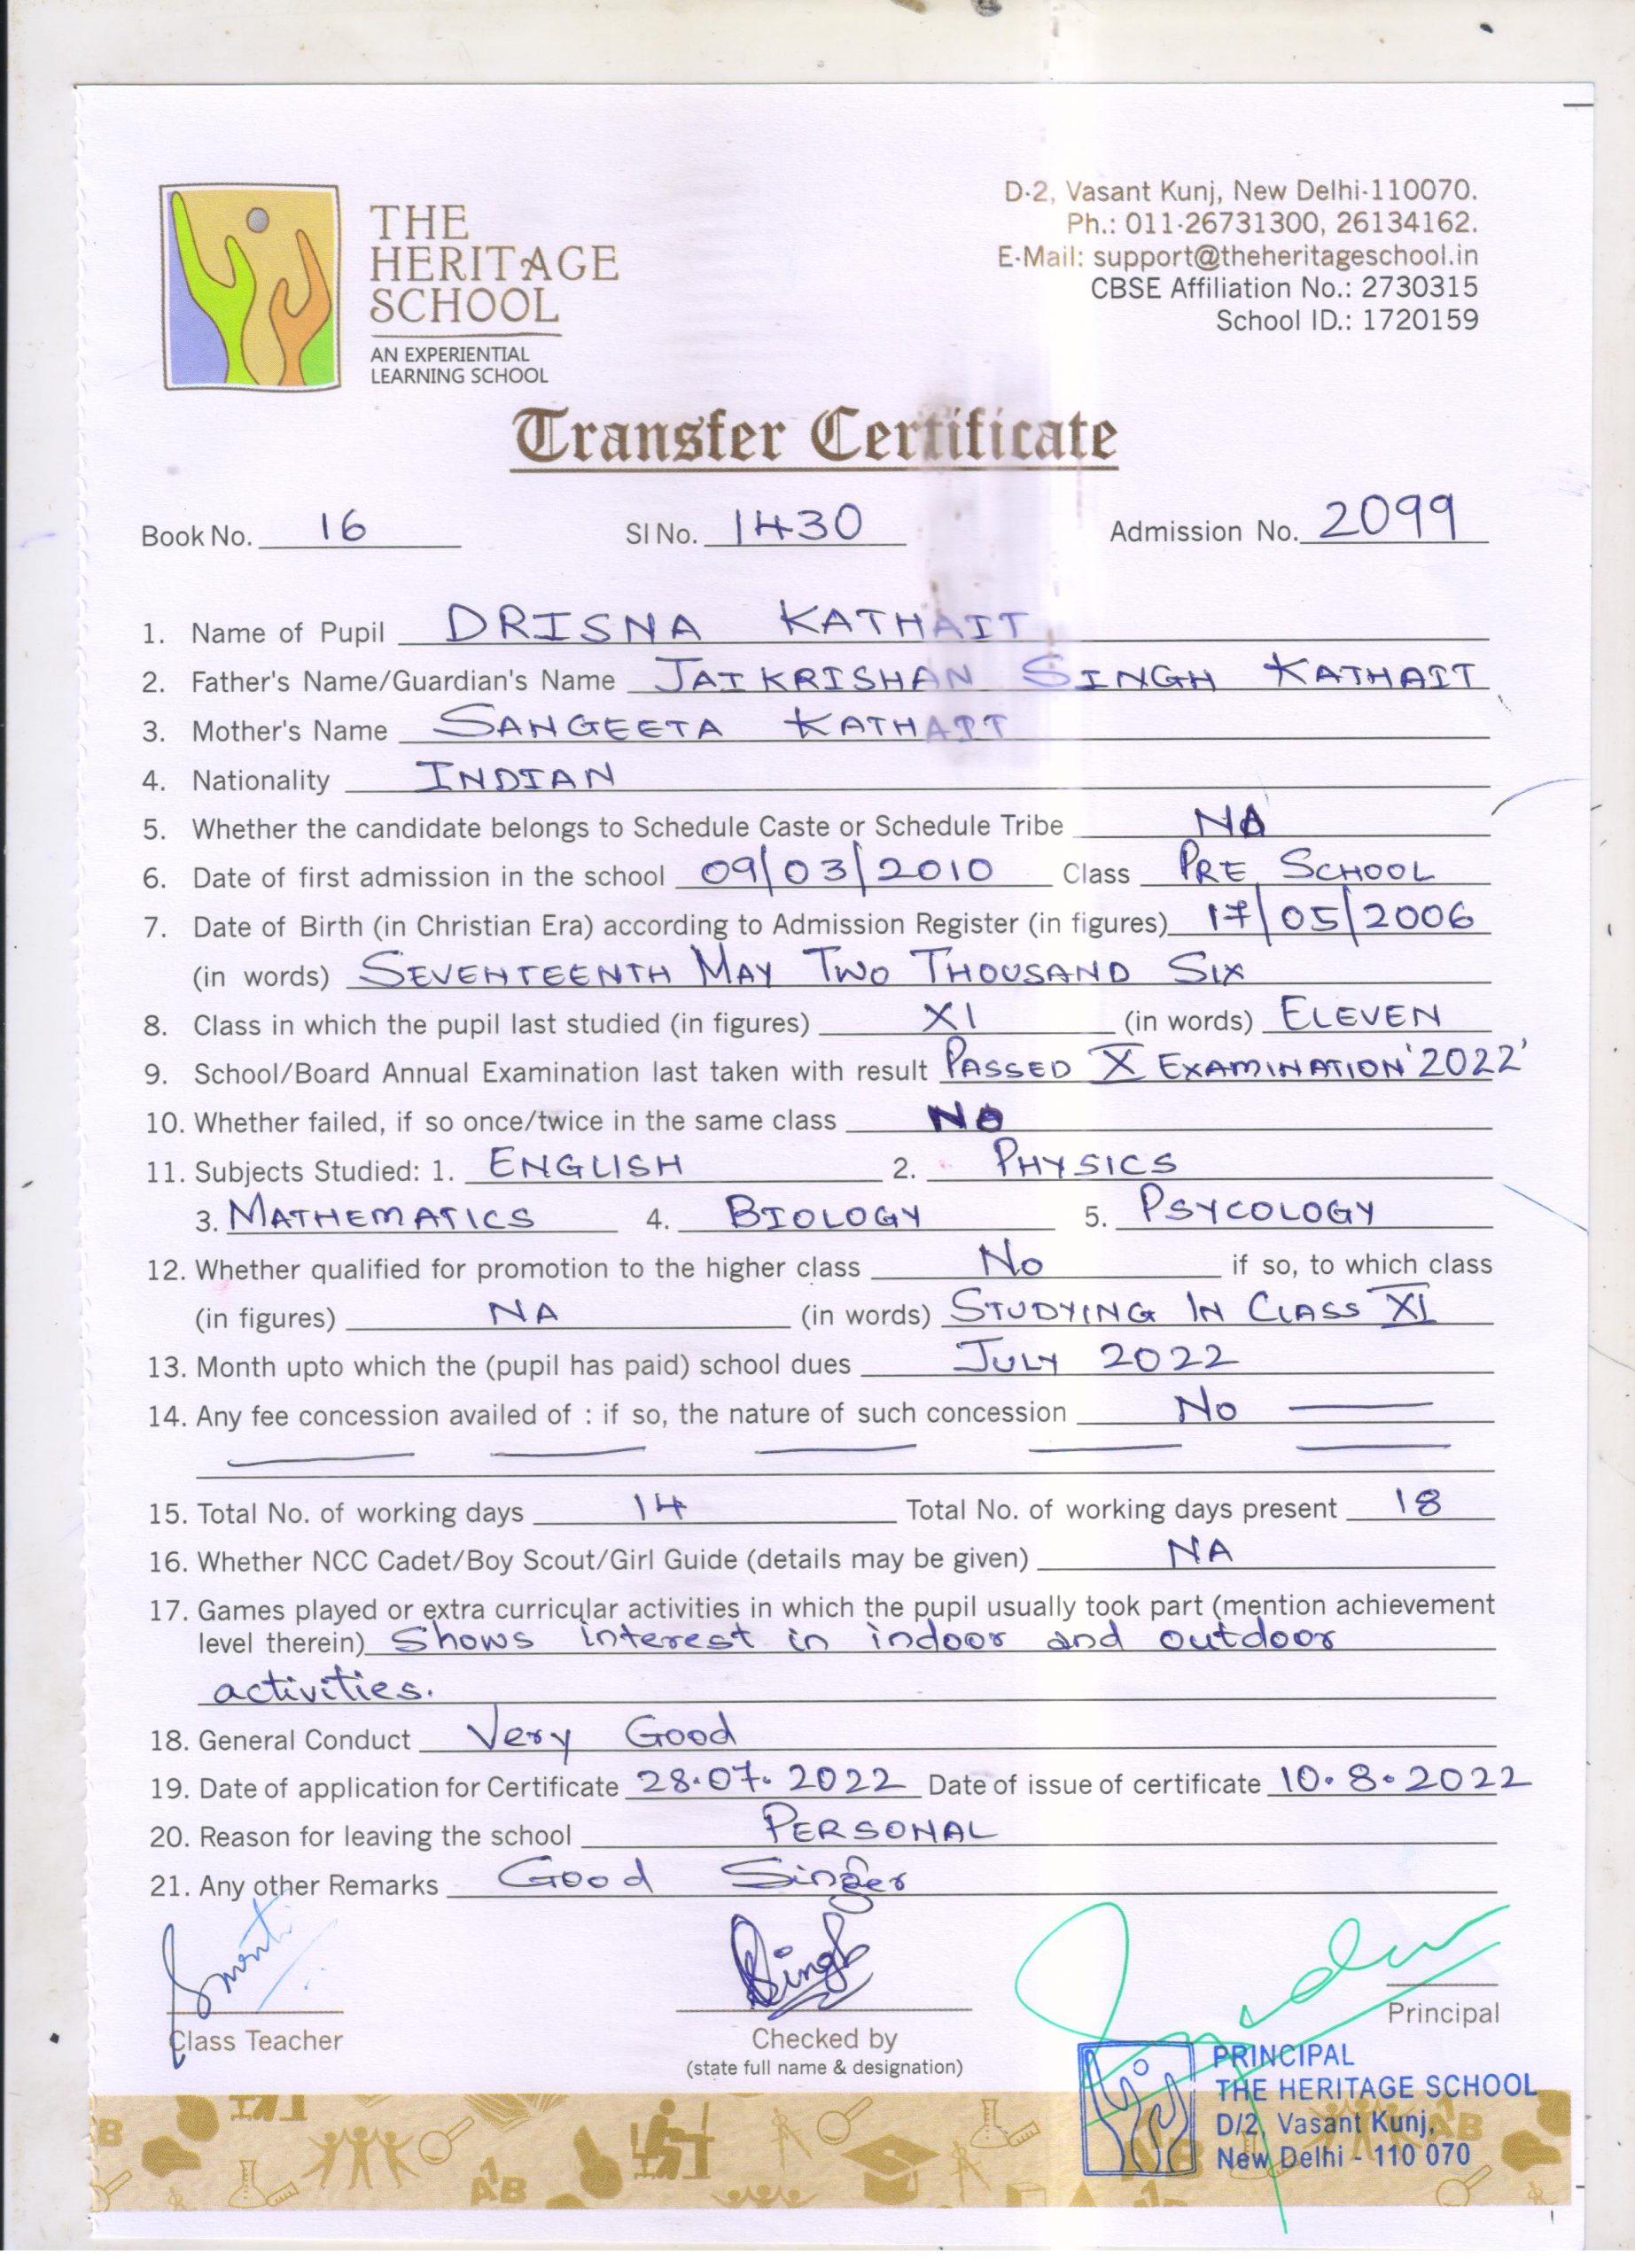 THE
HERITAGE
SCHOOL
AN EXPERIENTIAL
LEARNING SCHOOL
D-2, Vasant Kunj, New Delhi-110070.
Ph.: 011-26731300, 26134162.
E-Mail: support@theheritageschool.in
CBSE Affiliation No.: 2730315
School ID.: 1720159
Transfer Certificate
Book No. 16 Sl No. 1430 Admission No. 2099
1. Name of Pupil DRISNA KATHAIT
2. Father's Name/Guardian's Name JAIKRISHAN SINGH KATHAIT
3. Mother's Name SANGEETA KATHAIT
4. Nationality INDIAN
5. Whether the candidate belongs to Schedule Caste or Schedule Tribe NA
6. Date of first admission in the school 09/03/2010 Class PRE SCHOOL
7. Date of Birth (in Christian Era) according to Admission Register (in figures) 17/05/2006
(in words) SEVENTEENTH MAY TWO THOUSAND SIX
8. Class in which the pupil last studied (in figures) XI (in words) ELEVEN
9. School/Board Annual Examination last taken with result PASSED X EXAMINATION '2022'
10. Whether failed, if so once/twice in the same class NO
11. Subjects Studied: 1. ENGLISH 2. PHYSICS
3. MATHEMATICS 4. BIOLOGY 5. PSYCOLOGY
12. Whether qualified for promotion to the higher class No if so, to which class
(in figures) NA (in words) STUDYING IN CLASS XI
13. Month upto which the (pupil has paid) school dues JULY 2022
14. Any fee concession availed of : if so, the nature of such concession No
15. Total No. of working days 14 Total No. of working days present 18
16. Whether NCC Cadet/Boy Scout/Girl Guide (details may be given) NA
17. Games played or extra curricular activities in which the pupil usually took part (mention achievement
level therein) Shows interest in indoor and outdoor
activities.
18. General Conduct Very Good
19. Date of application for Certificate 28.07.2022 Date of issue of certificate 10.8.2022
20. Reason for leaving the school PERSONAL
21. Any other Remarks Good Singer
Singh
Class Teacher
Checked by
(state full name & designation)
Principal
PRINCIPAL
THE HERITAGE SCHOOL
D/2, Vasant Kunj,
New Delhi - 110 070